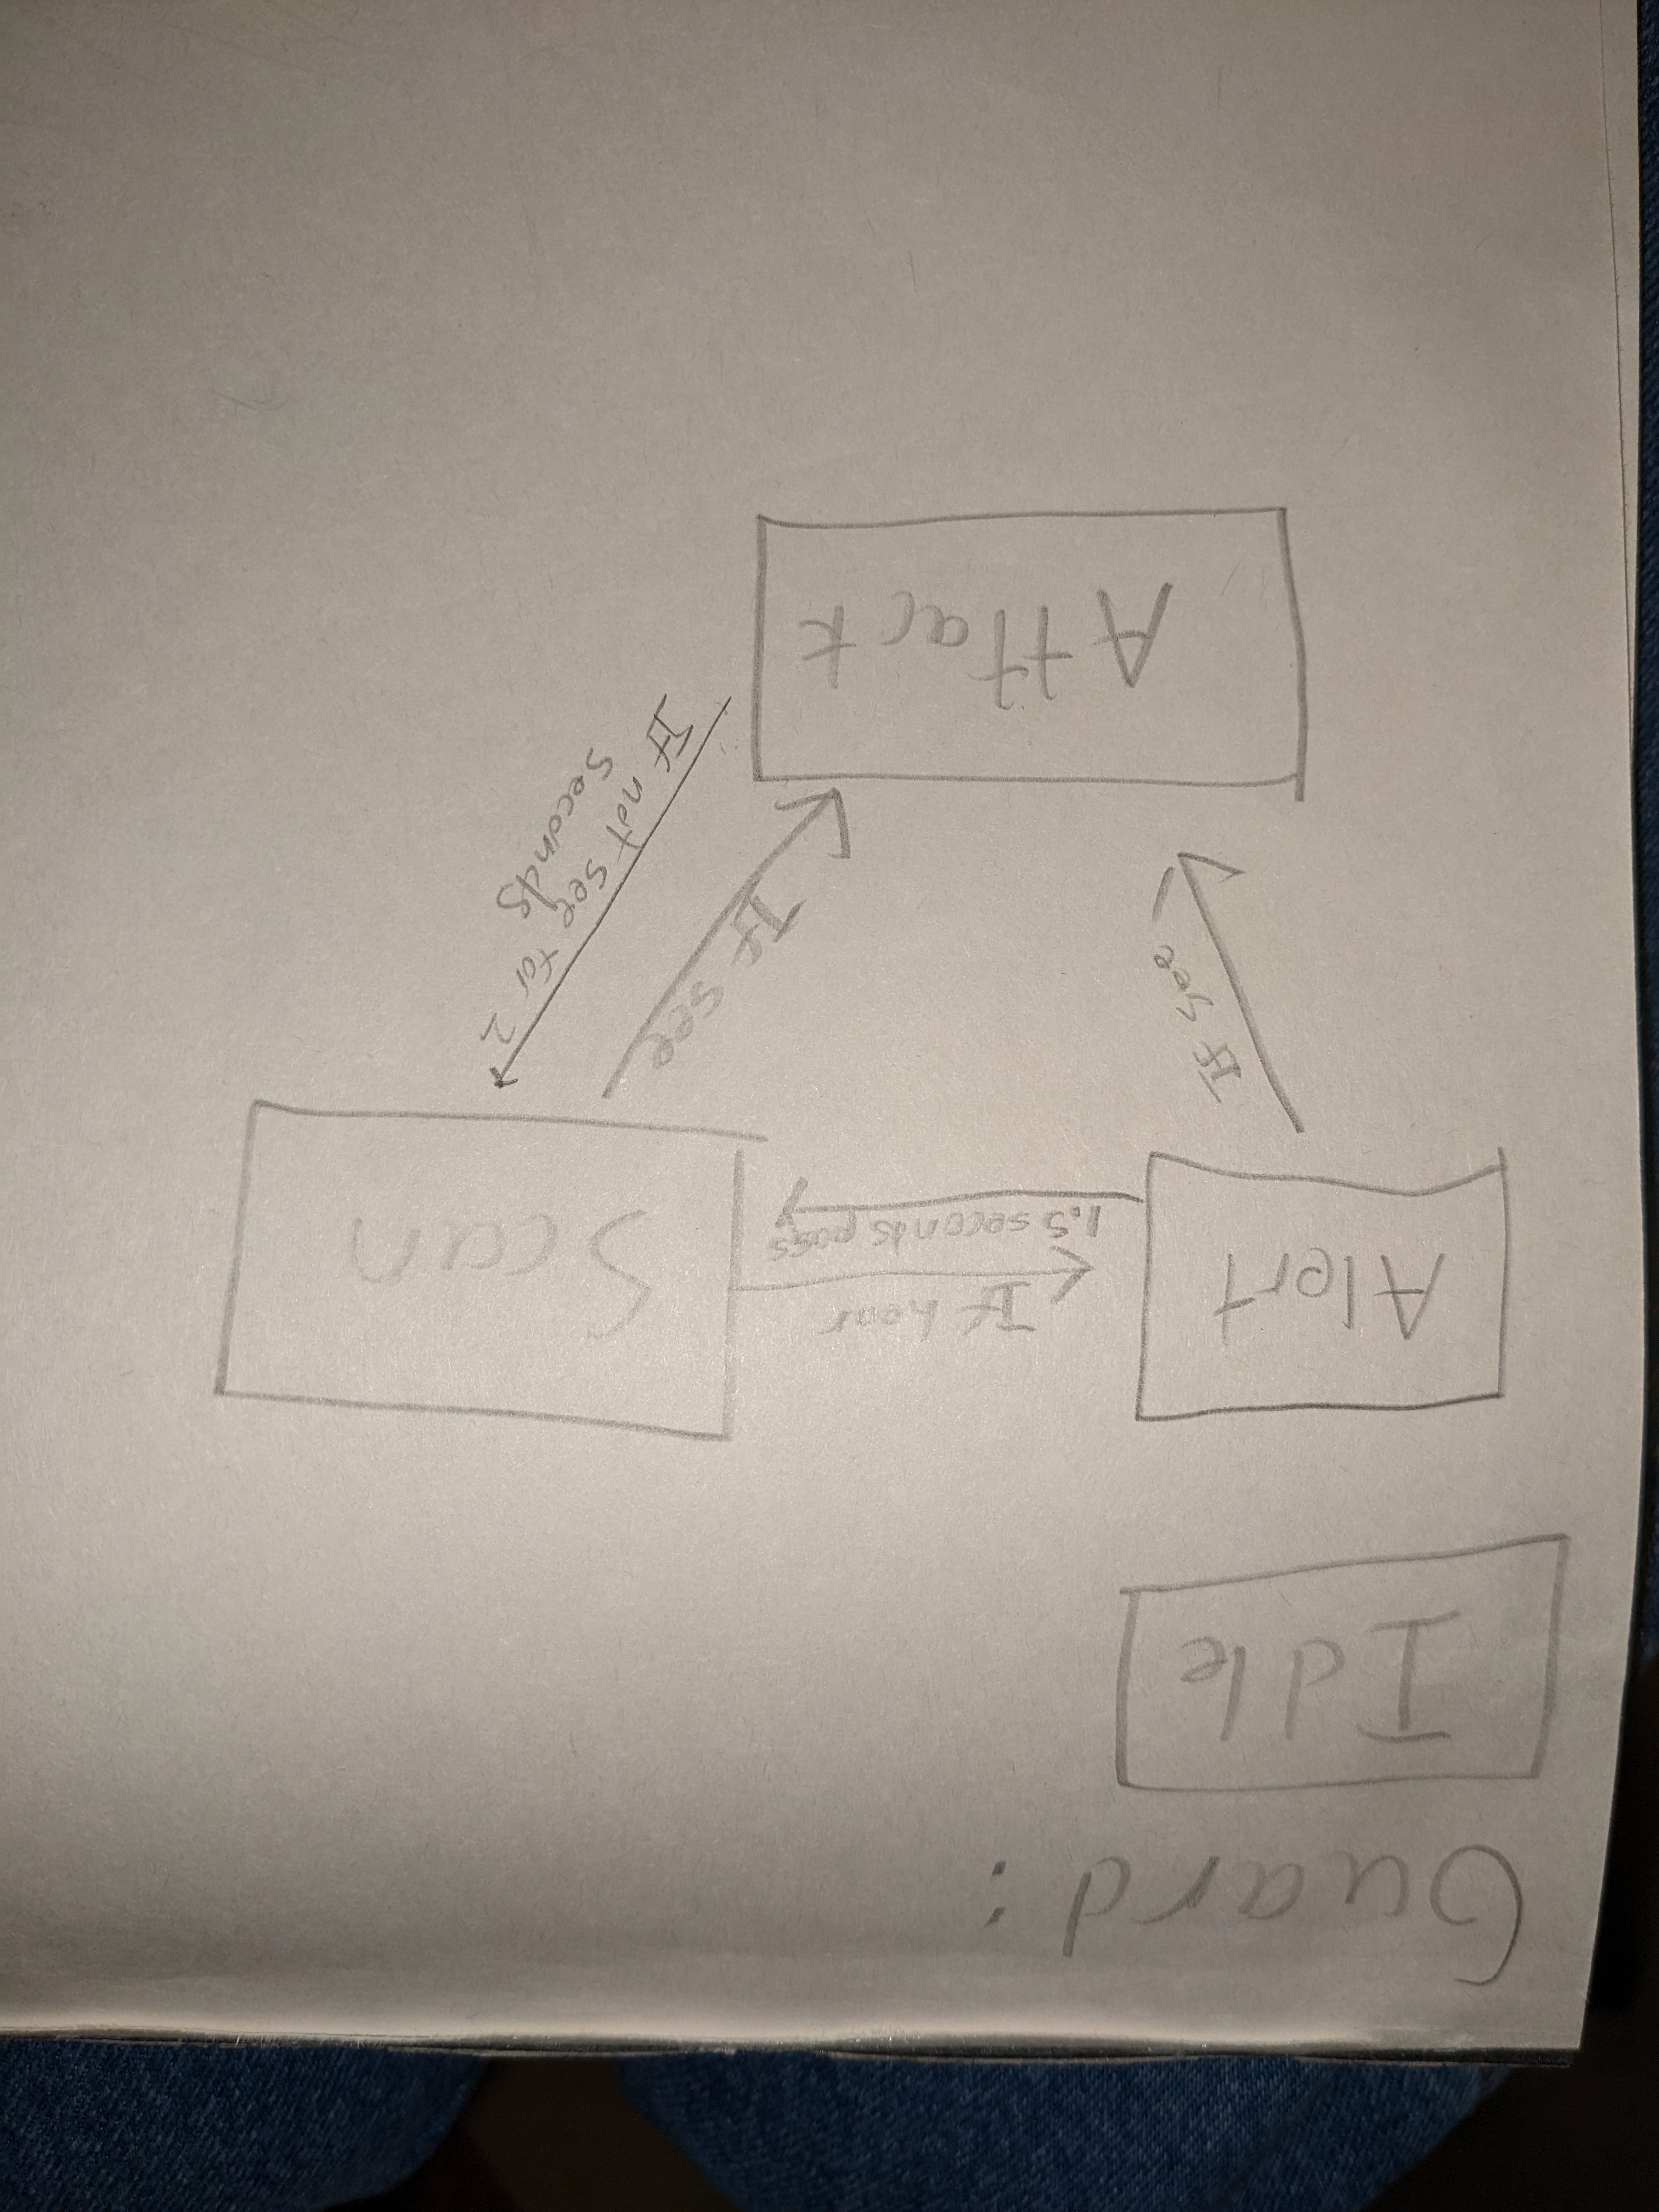 Guard:
Idle
Alert
If hear
1.5 seconds pass
Scan
If see
If see
If not see for 2
seconds
Attack